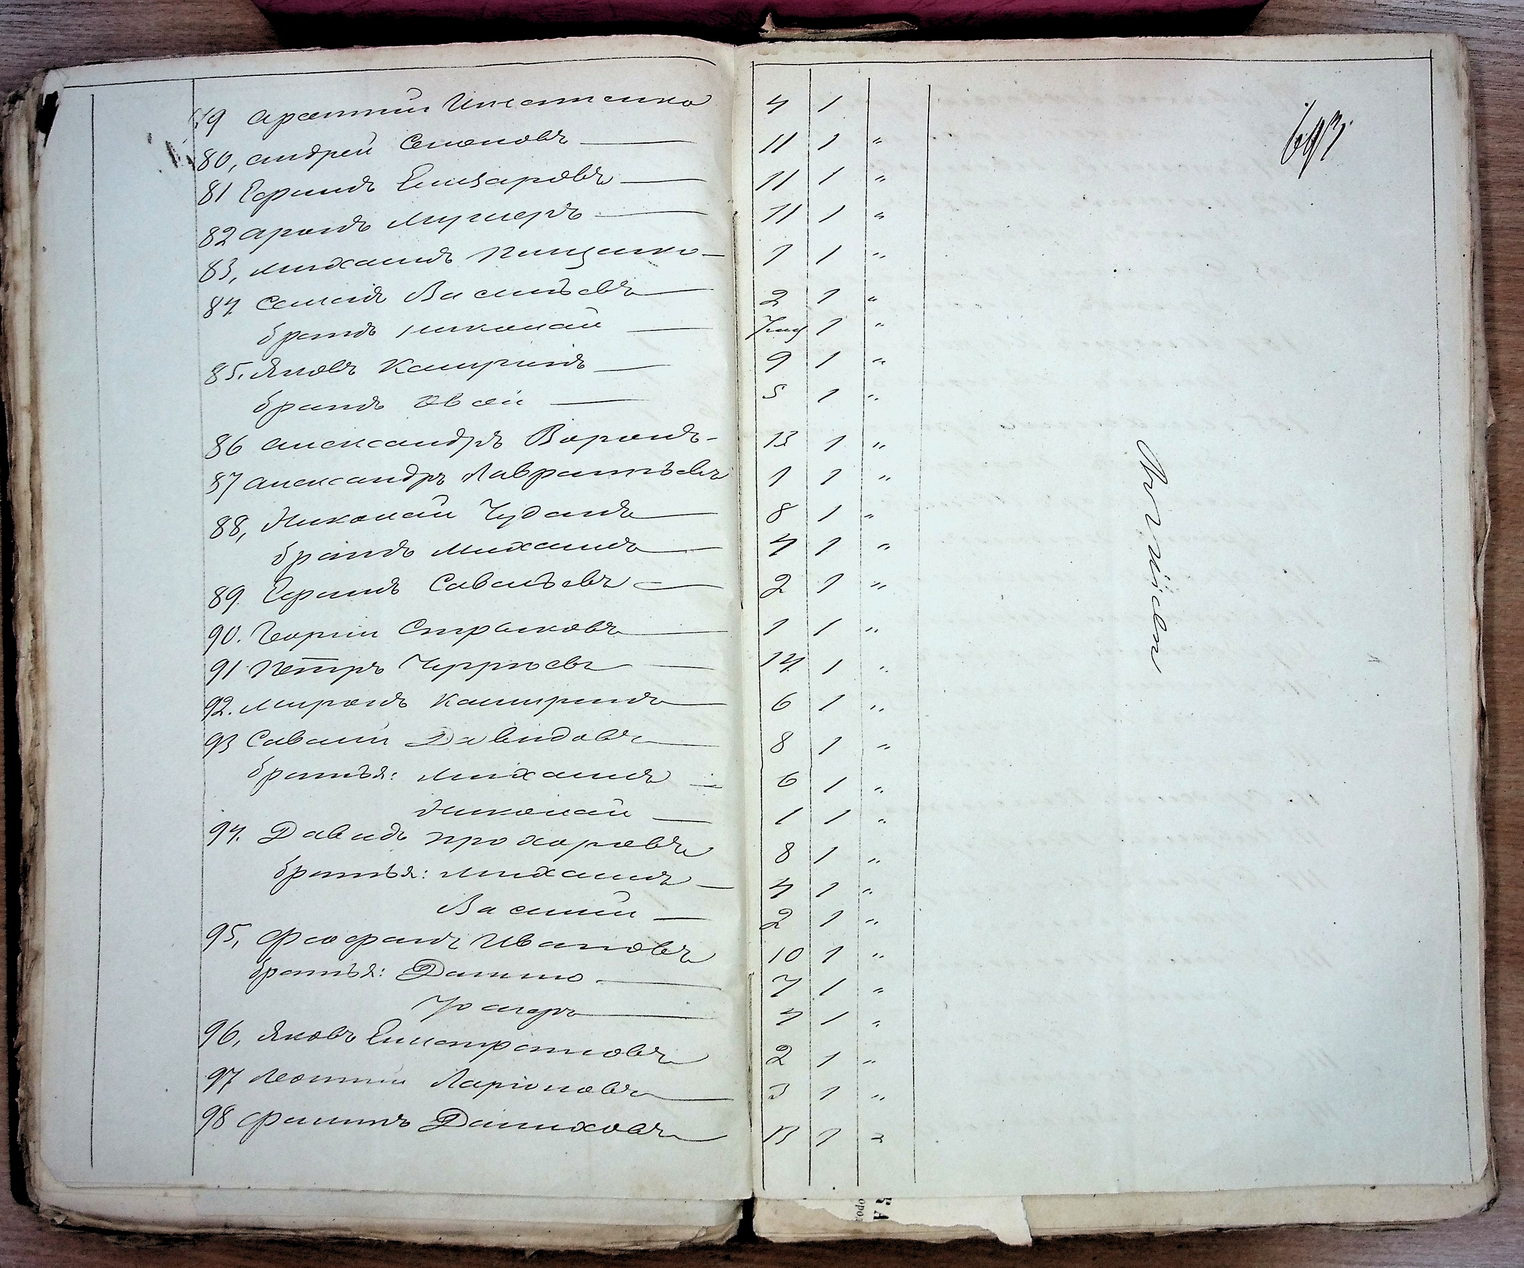 79 Арентий Игнатенко 4 1
80, Андрей Семеновъ 11 1 "
81 Ефимъ Елизаровъ 11 1 "
82 Аронъ 11 1 "
83, Михаилъ Пищенко 1 1 "
84 Семенъ Васильевъ 2 1 "
братъ Николай 7 мц 1 "
85. Яковъ Кашринъ 9 1 "
братъ 5 1 "
86 Александръ Воронъ 13 1 "
87 Александръ Лаврентьевъ 1 1 "
88, Николай Чуданъ 8 1 "
братъ Михаилъ 4 1 "
89. Ефимъ Савельевъ 2 1 "
90. Георгий Стрыковъ 1 1 "
91 Петръ 14 1 "
92. Миронъ Кашринъ 6 1 "
93 Савелий Давидовъ 8 1 "
братья: Михаилъ 6 1 "
Николай 1 1 "
94. Давидъ Прохоровъ 8 1 "
братья: Михаилъ 4 1 "
Василий 2 1 "
95, Феофанъ Ивановъ 10 1 "
братья: Данило 7 1 "
4 1 "
96, Яковъ Елистратовъ 2 1 "
97 Леонтий Ларионовъ 3 1 "
98 Филипъ Даниловъ 13 1 "
693